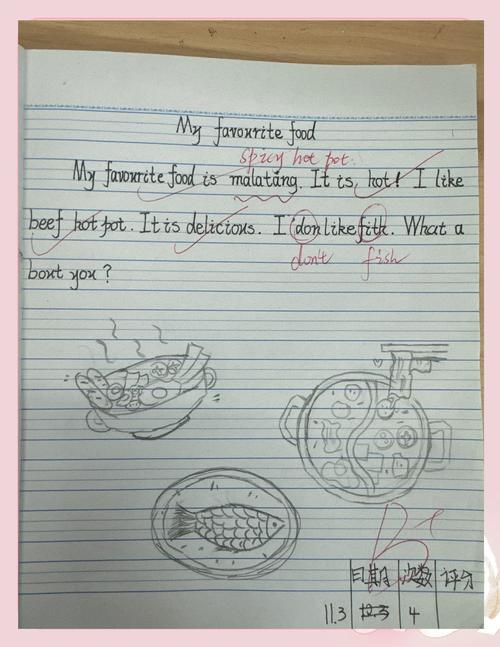 My favourite food
spicy hot pot.
My favourite food is malatāng. It is hot! I like
beef hot pot. It is delicious. I don like fith. What a
don't fish
bout you?
B+
日期 次数 评分
11.3 12.3 4